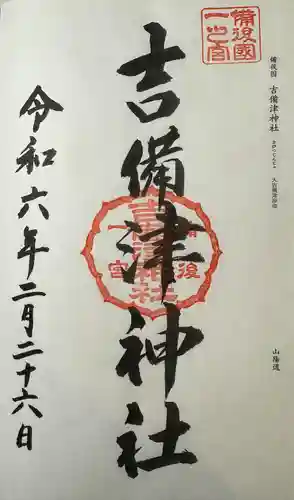 備後國
一之宮
備後国 吉備津神社
山陽道
吉備津神社
備後
一宮
吉備津神社
令和六年二月二十六日